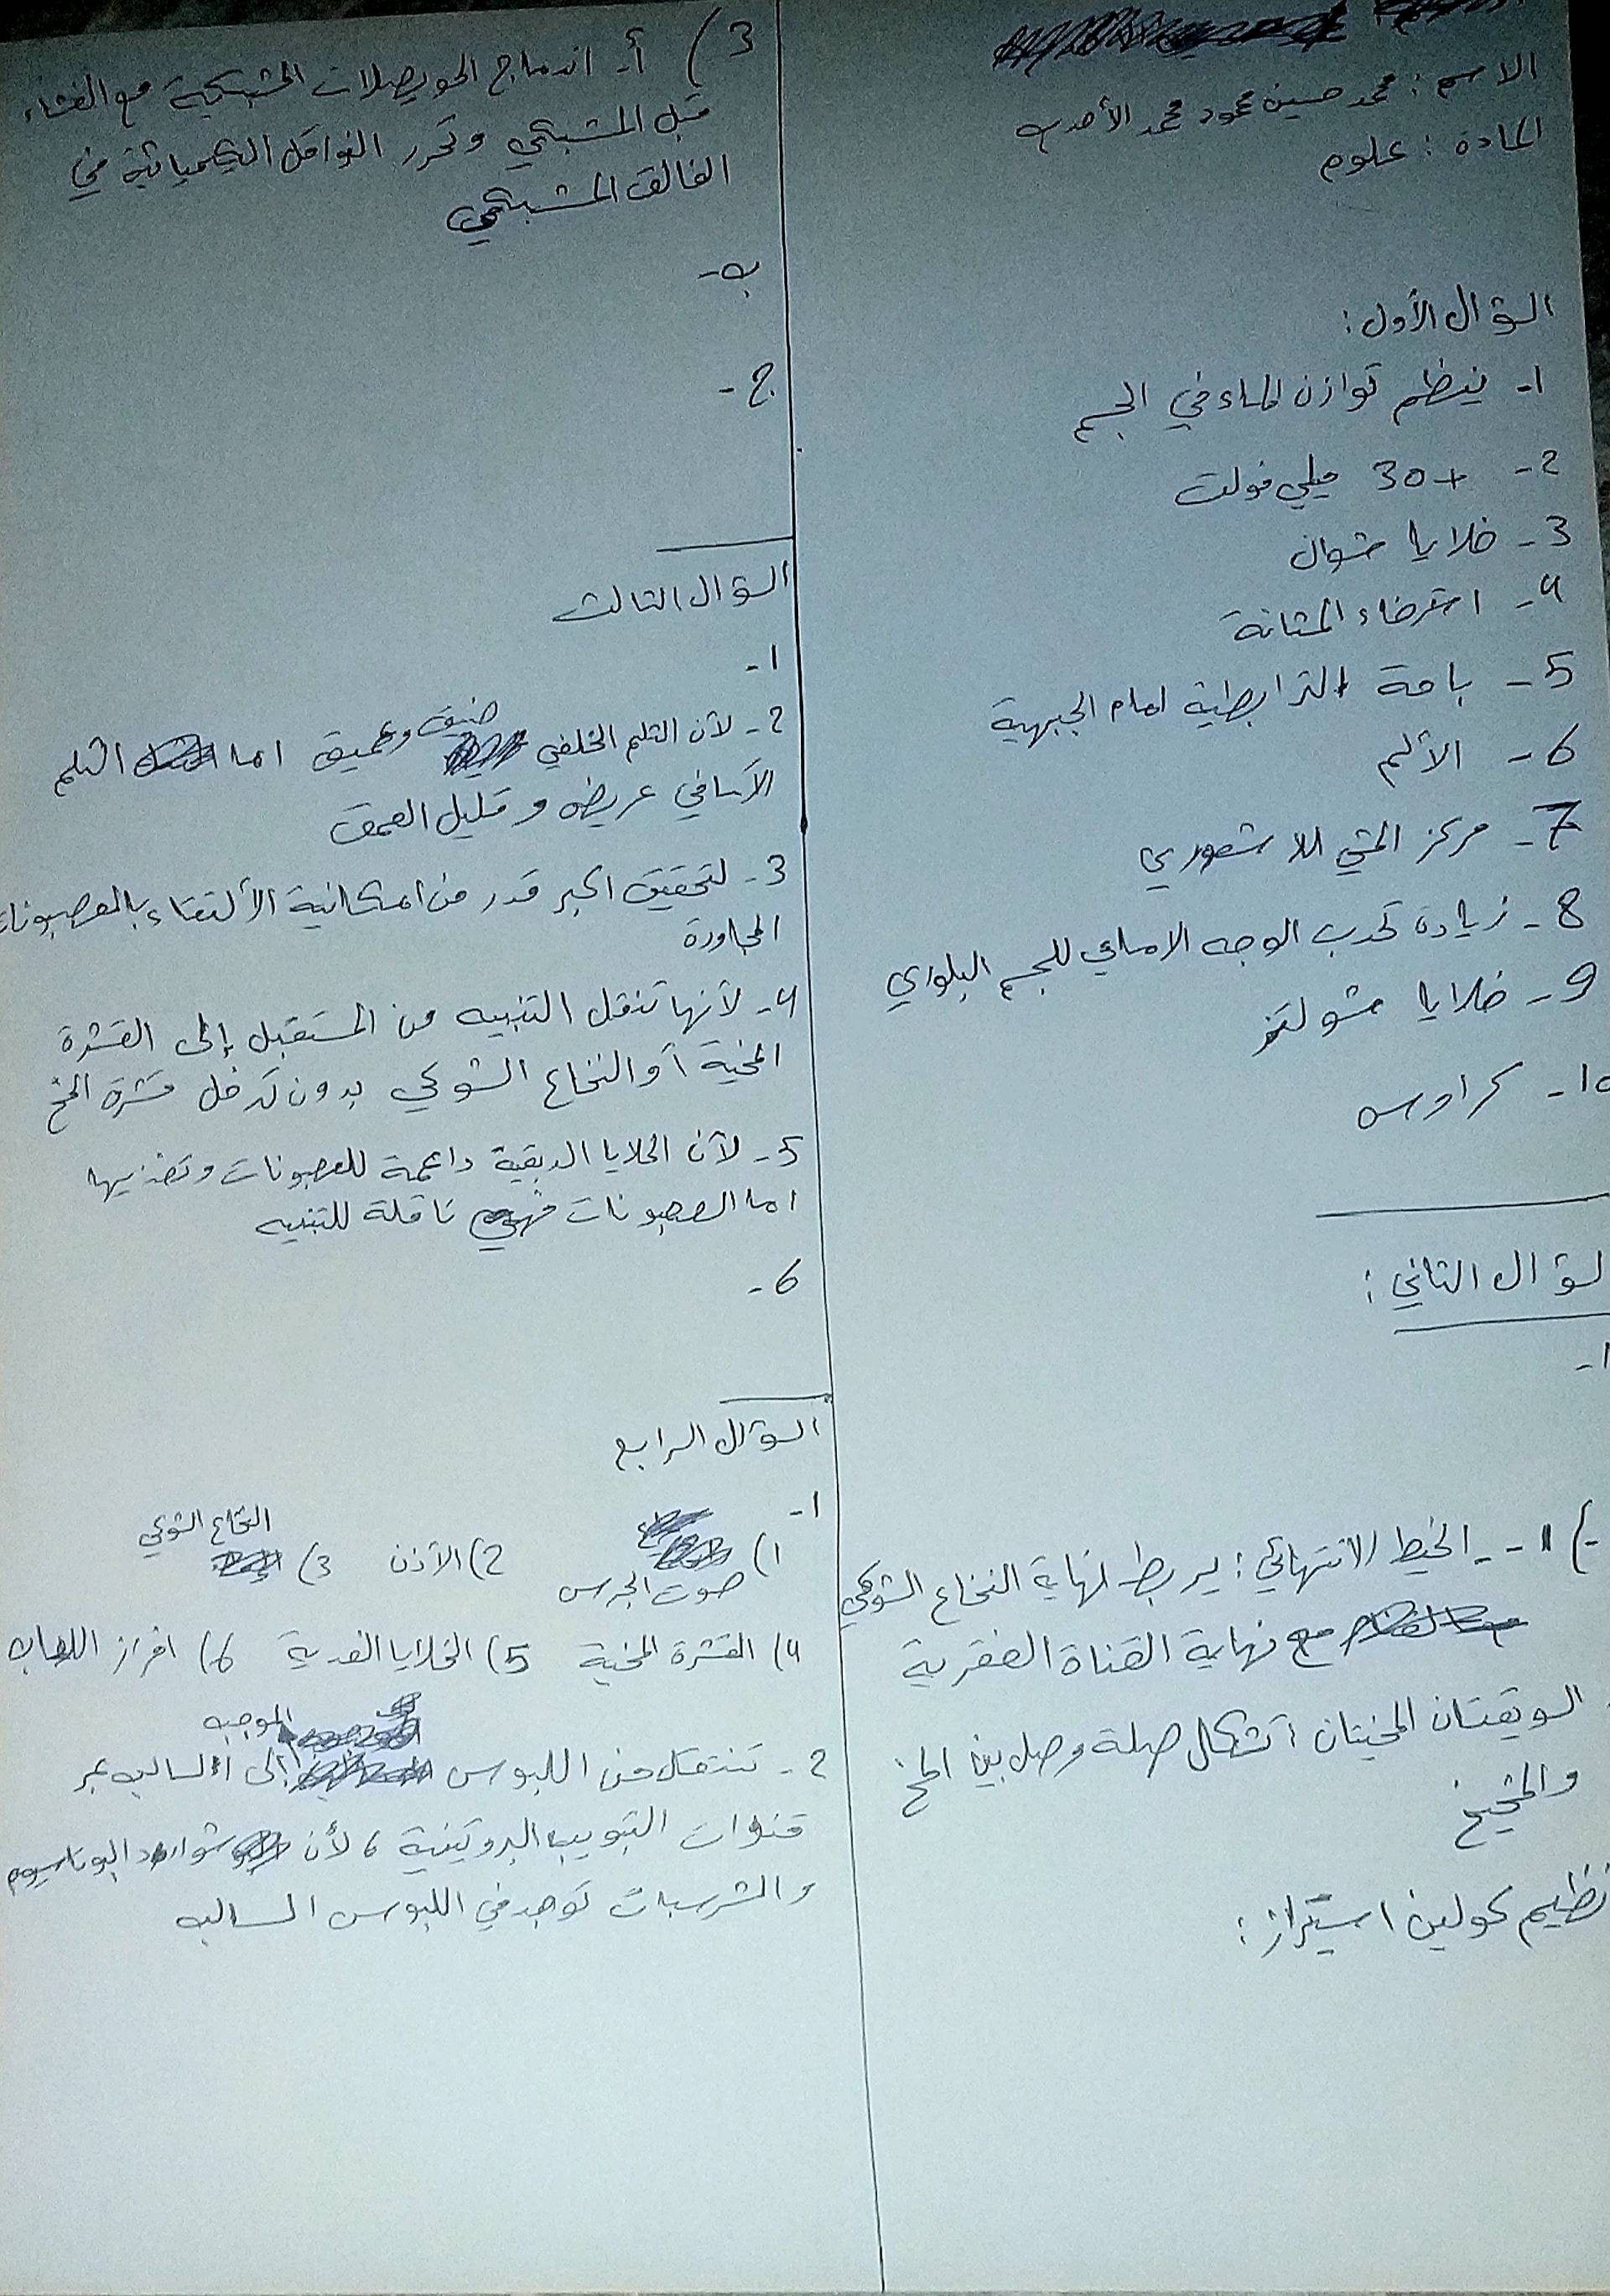 الاسم : محمد حسين محمود محمد الأحدب
المادة : علوم
السؤال الأول :
1- ينظم توازن الماء في الجسم
2- +30 ميلي فولت
3- خلايا شوان
4- استرخاء المثانة
5- باحة الترابطية امام الجبهية
6- الألم
7- مركز المشي اللا شعوري
8- زيادة تحدب الوجه الامامي للجسم البلوري
9- خلايا شولتز
10- كراوس
لسؤال الثاني :
1-
1- - الخيط الانتهائي : يربط نهاية النخاع الشوكي
مع نهاية القناة الفقرية
السويقتان المخيتان : تشكل صلة وصل بين المخ
والمخيخ
نظيم كولين استيراز :
3) أ- اندماج الحويصلات المشبكية مع الغشاء
قبل المشبكي وتحرر النواقل الكيميائية في
الفالق المشبكي
ب-
ج-
السؤال الثالث
1-
2- لأن الثلم الخلفي ضيق وعميق اما الثلم
الأمامي عريض و قليل العمق
3- لتحقيق اكبر قدر من امكانية الألتقاء بالعصبونات
المجاورة
4- لأنها تنقل التنبيه من المستقبل إلى القشرة
المخية أو النخاع الشوكي بدون تدخل قشرة المخ
5- لأن الخلايا الدبقية داعمة للعصبونات وتغذيها
اما العصبونات فهي ناقلة للتنبيه
6-
السؤال الرابع
1-
1) صوت الجرس 2) الأذن 3) النخاع الشوكي
4) القشرة المخية 5) الخلايا الغدية 6) افراز اللعاب
2- تنتقل من اللبوس الموجب إلى السالب عبر
قنوات التبويب البروتينية ، لأن شوارد البوتاسيوم
والشرسبات توجد في اللبوس السالب